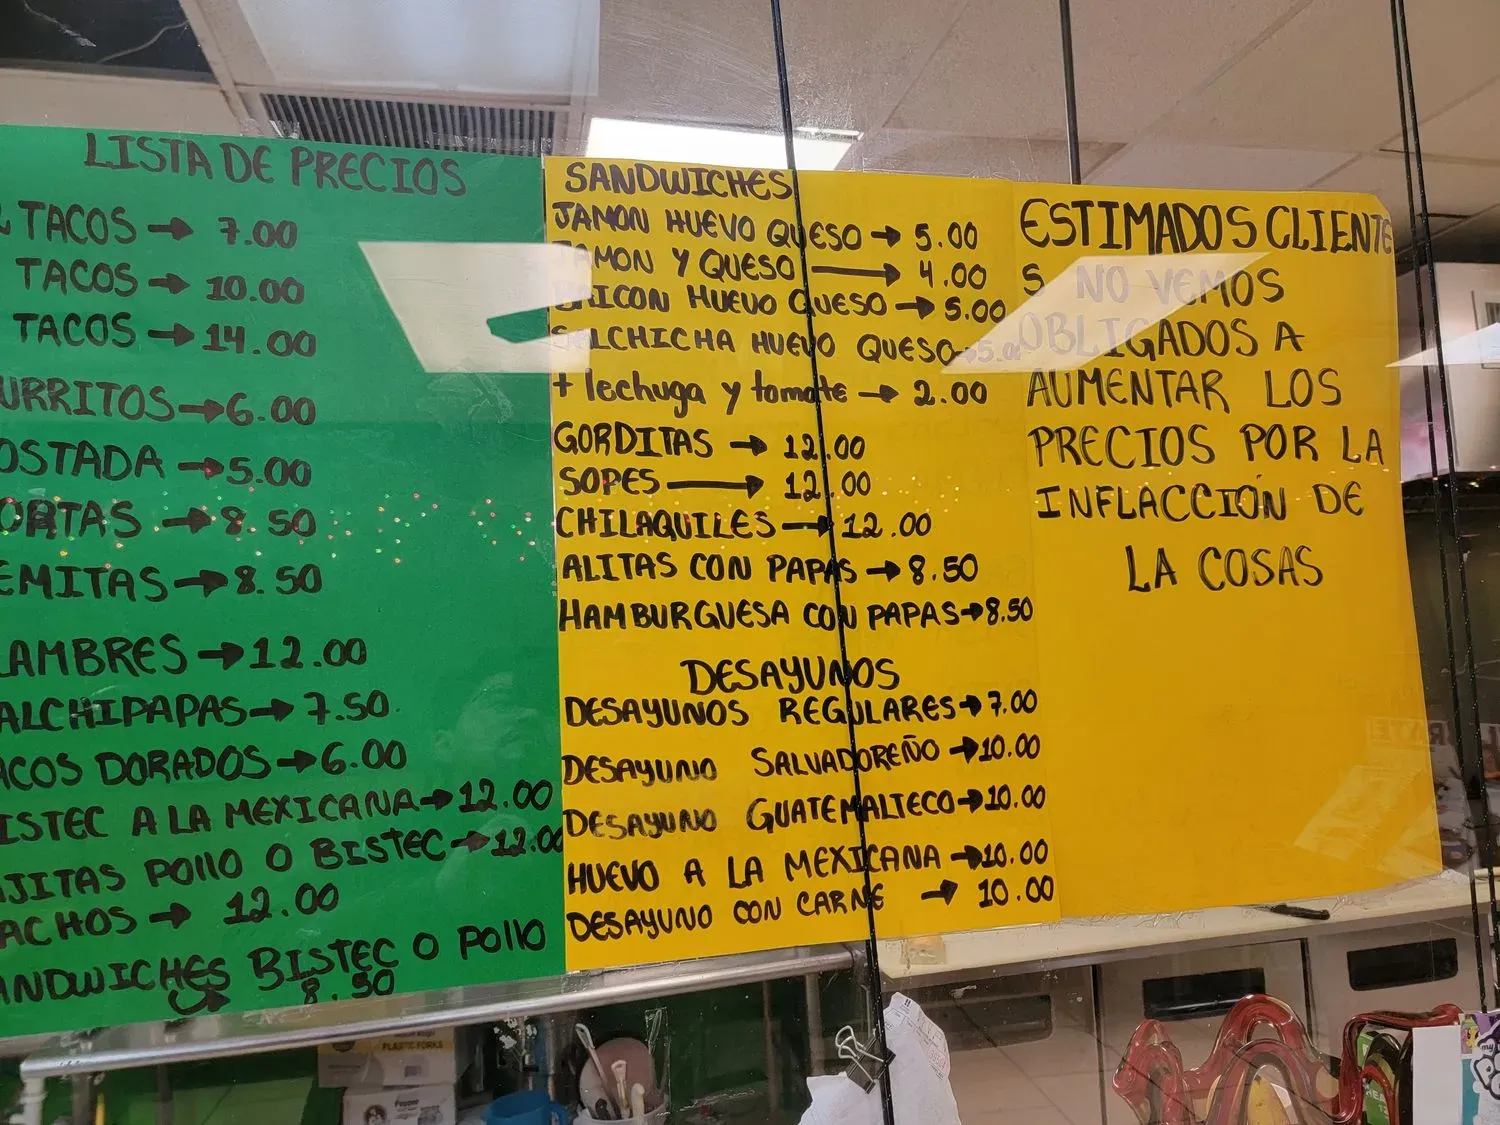 LISTA DE PRECIOS
TACOS → 7.00
TACOS → 10.00
TACOS → 14.00
URRITOS → 6.00
OSTADA → 5.00
ORTAS → 8.50
EMITAS → 8.50
LAMBRES → 12.00
ALCHIPAPAS → 7.50
ACOS DORADOS → 6.00
ISTEC A LA MEXICANA → 12.00
AJITAS POllO O BISTEC → 12.00
ACHOS → 12.00
ANDWICHES BISTEC O POllO
→ 8.50
SANDWICHES
JAMON HUEVO QUESO → 5.00
JAMON Y QUESO → 4.00
BAICON HUEVO QUESO → 5.00
SALCHICHA HUEVO QUESO → 5.00
+ lechuga y tomate → 2.00
GORDITAS → 12.00
SOPES → 12.00
CHILAQUILES → 12.00
ALITAS CON PAPAS → 8.50
HAMBURGUESA CON PAPAS → 8.50
DESAYUNOS
DESAYUNOS REGULARES → 7.00
DESAYUNO SALVADOREÑO → 10.00
DESAYUNO GUATEMALTECO → 10.00
HUEVO A LA MEXICANA → 10.00
DESAYUNO CON CARNE → 10.00
ESTIMADOS CLIENTE
S NO VEMOS
OBLIGADOS A
AUMENTAR LOS
PRECIOS POR LA
INFLACCIÓN DE
LA COSAS
PLASTIC FORKS